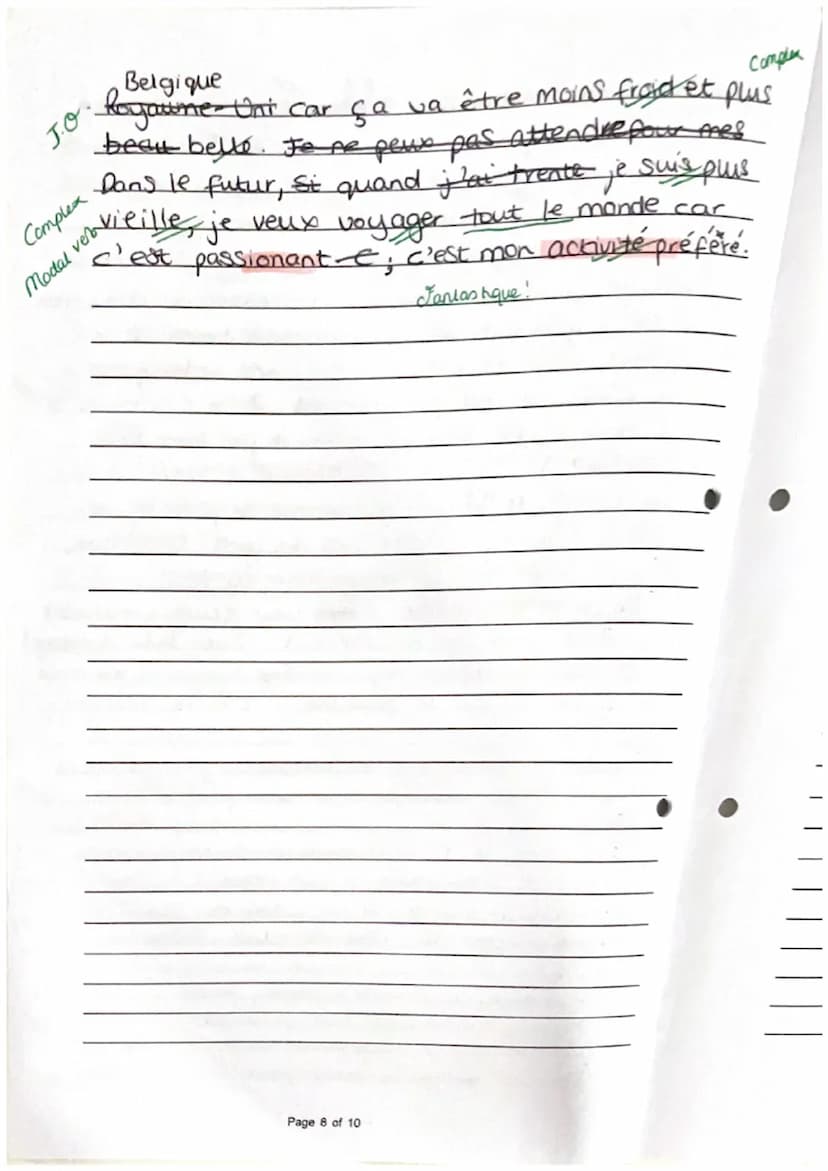 Belgique
Complex
J.O. Royaume-Uni car ça va être moins froid et plus
beau belle. Je ne peux pas attendre pour mes
Dans le futur, si quand j'ai trente je suis plus
Complex vieille, je veux voyager tout le monde car
Modal verb c'est passionant c'est mon activité préféré.
Fantastique!
Page 8 of 10